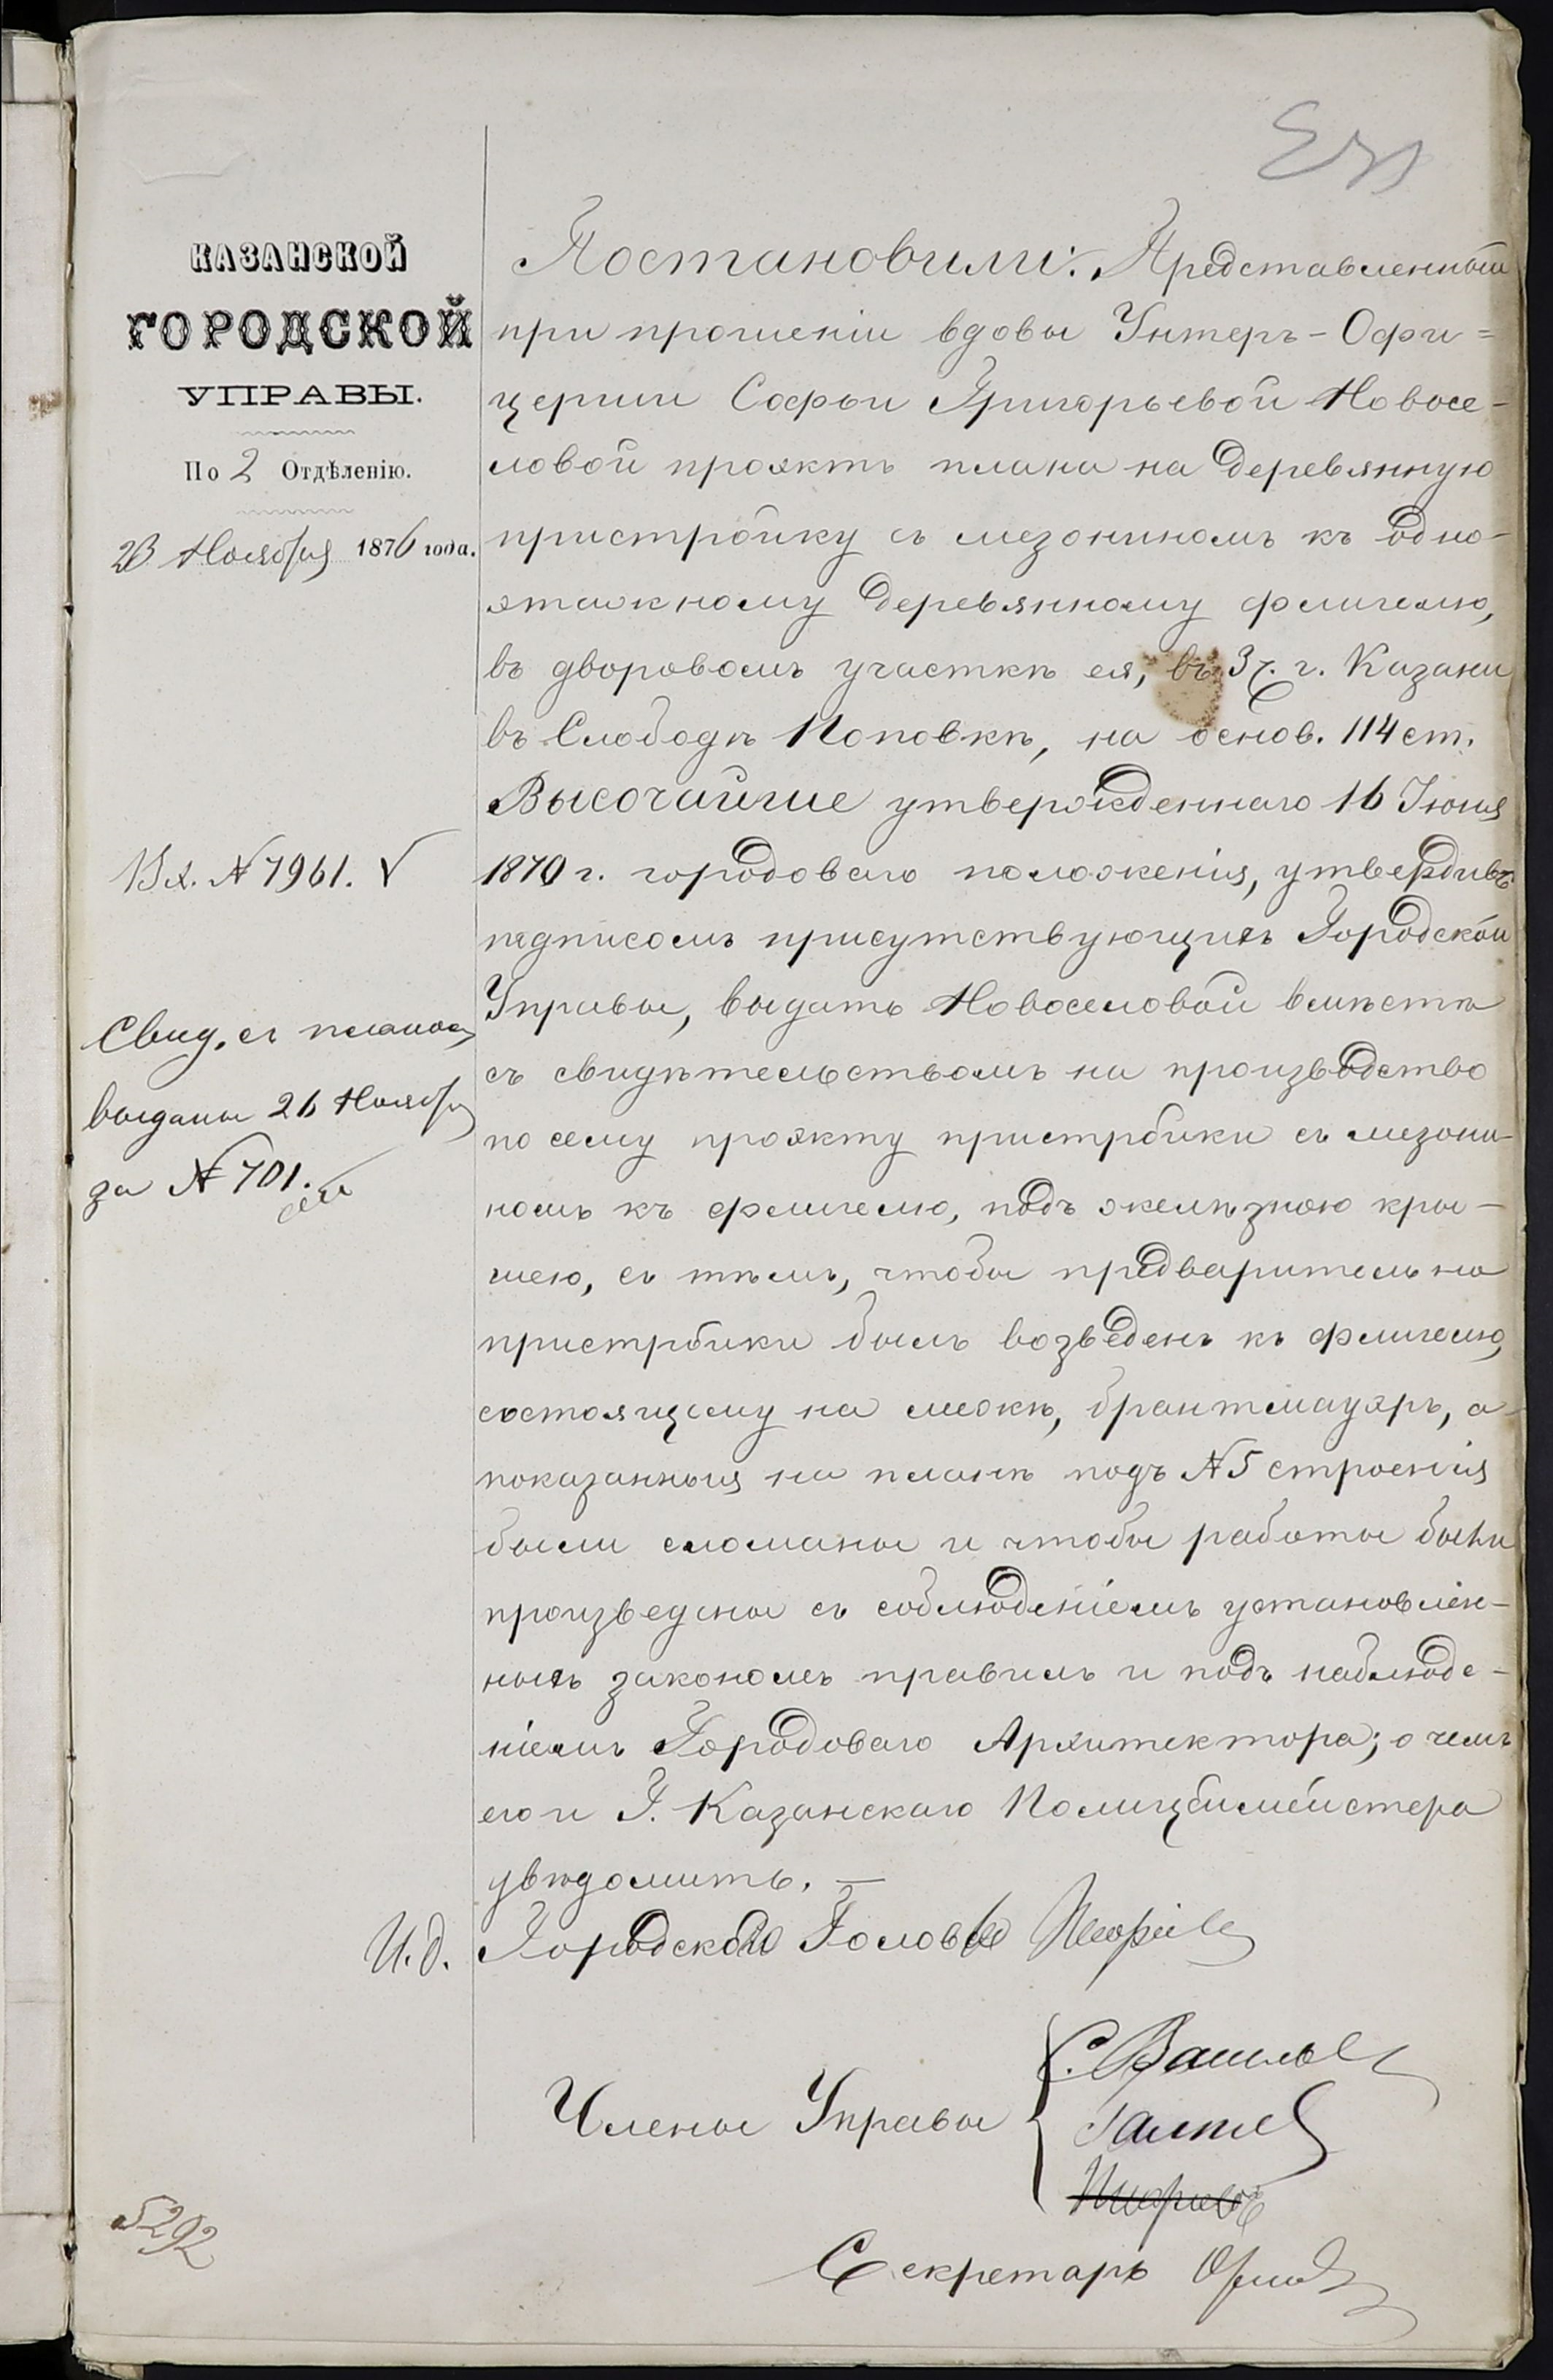 КАЗАНСКОЙ
ГОРОДСКОЙ
УПРАВЫ.
По 2 Отдѣленію.
23 Ноября 1876 года.
Вх. № 7961.
Свид. съ планомъ
выданы 26 Ноября
за № 701.
Постановили: Представленный
при прошеніи вдовы Унтеръ-Офи=
церши Софьи Григорьевой Новосе-
ловой проэктъ плана на деревянную
пристройку съ мезониномъ къ одно-
этажному деревянному флигелю,
въ дворовомъ участкѣ ея, въ 3 ч. г. Казани
въ Слободѣ Поповкѣ, на основ. 114 ст.
Высочайше утвержденнаго 16 Іюня
1870 г. городоваго положенія, утвердивъ
подписомъ присутствующихъ Городской
Управы, выдать Новоселовой вмѣстѣ
съ свидѣтельствомъ на производство
по сему проэкту пристройки съ мезони-
номъ къ флигелю, подъ желѣзною кры-
шею, съ тѣмъ, чтобы предварительно
пристройки былъ возведенъ къ флигелю,
состоящему на межѣ, брантмауэръ, а
показанныя на планѣ подъ № 5 строенія
были сломаны и чтобы работы были
произведены съ соблюденіемъ установлен-
ныхъ закономъ правилъ и подъ наблюде-
ніемъ Городоваго Архитектора; о чемъ
его и Г. Казанскаго Полицбимейстера
увѣдомить. —
И. д. Городской Головы
Члены Управы
Секретарь
5292